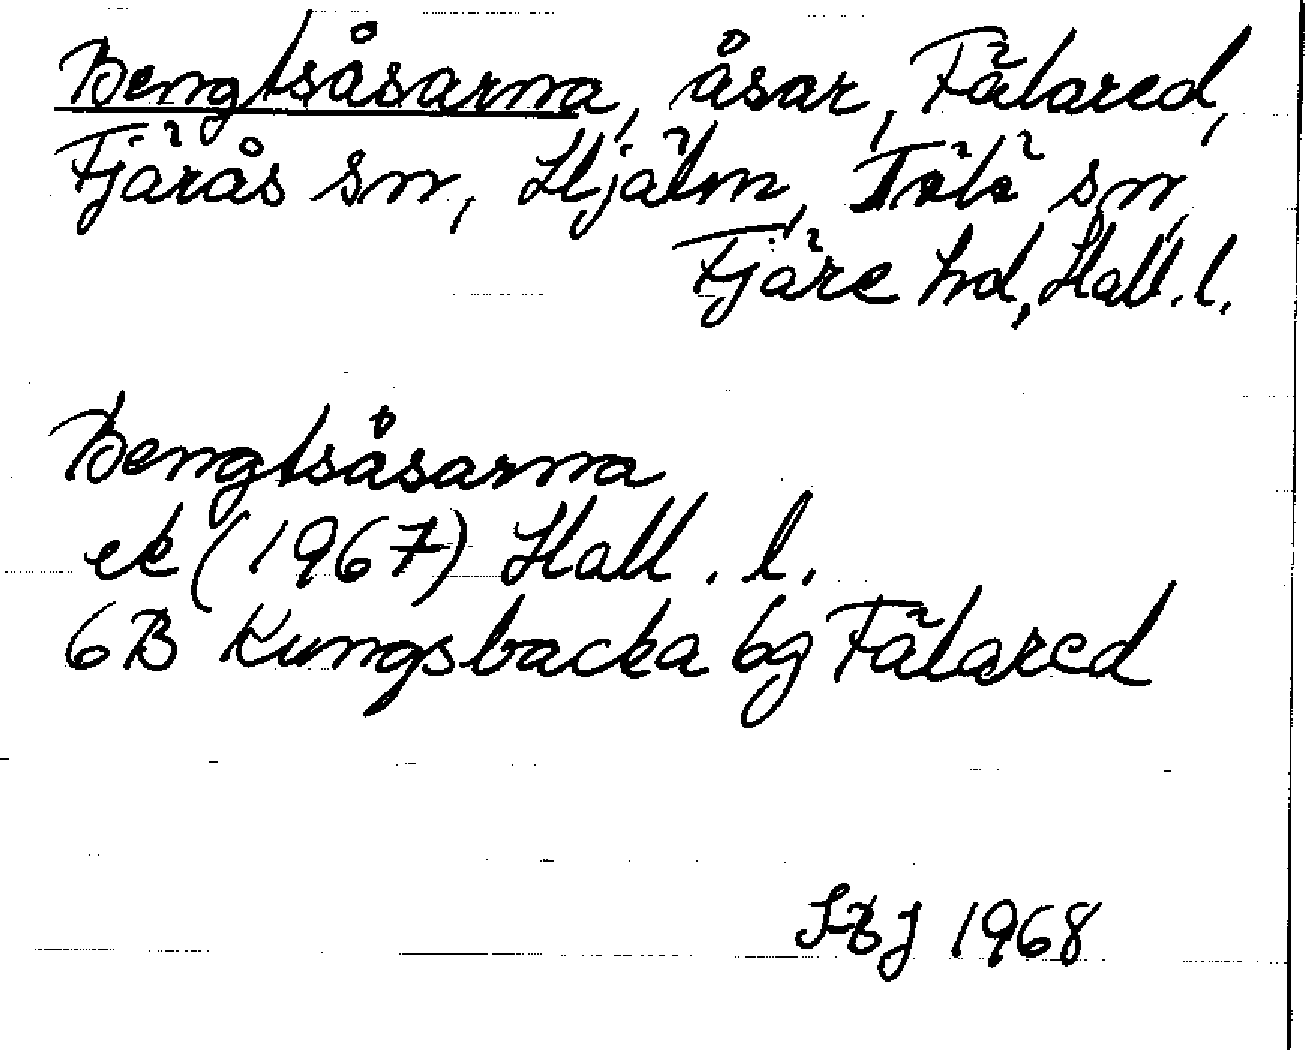 Bengtsåsarna, åsar, Fälared,
Fjärås sn, Hjälm, Tölö sn,
Fjäre hd, Hall. l.
Bengtsåsarna
ek (1967) Hall. l.
6B Kungsbacka 6g Fälared
1968